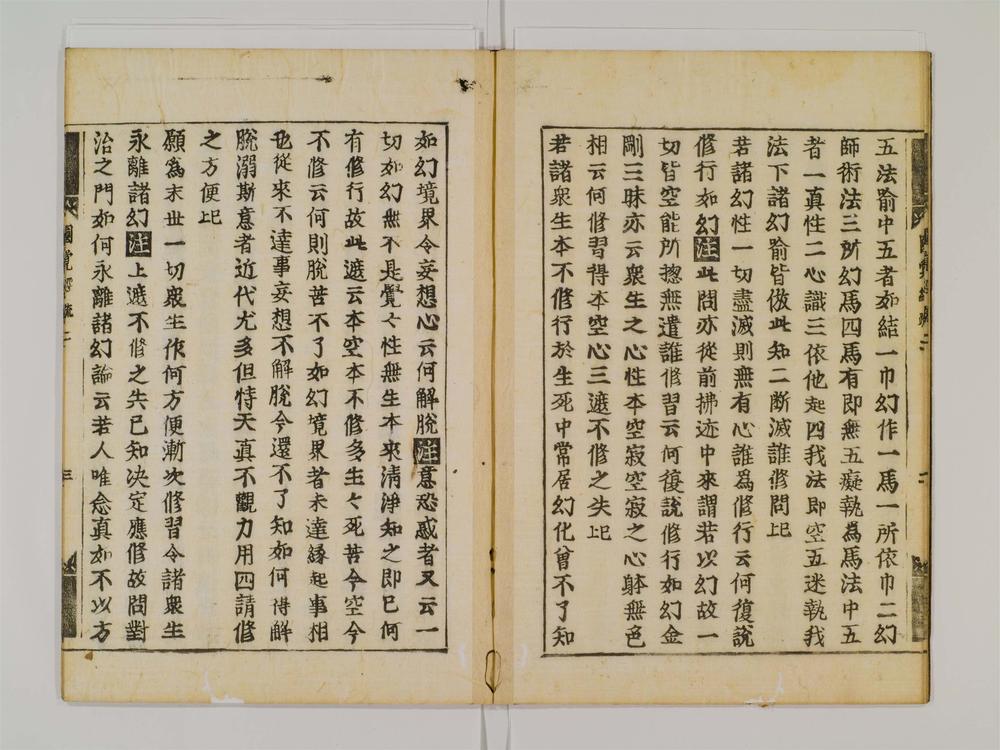 五法喻中五者如結一巾幻作一馬一所依巾二幻
師術法三所幻馬四馬有即無五癡執為馬法中五
者一真性二心識三依他起四我法即空五迷執我
法下諸幻喻皆倣此知二断滅誰修問㞐
若諸幻性一切盡滅則無有心誰為修行云何復說
修行如幻注此問亦從前拂迹中來謂若以幻故一
切皆空能所揔無遣誰修習云何復說修行如幻金
剛三昧亦云衆生之心性本空寂空寂之心躰無色
相云何修習得本空心三遮不修之失㞐
若諸衆生本不修行於生死中常居幻化曾不了知
如幻境界令妄想心云何解脫注意恐惑者又云一
切如幻無不是覺〻性無生本來清淨知之即已何
有修行故此遮云本空本不修多生〻死苦今空今
不修云何則脫苦不了如幻境界者未達緣起事相
也從來不達事妄想不解脫今還不了知如何得解
脫溺斯意者近代尤多但恃天真不觀力用四請修
之方便㞐
願為末世一切衆生作何方便漸次修習令諸衆生
永離諸幻注上遮不修之失已知决定應修故問對
治之門如何永離諸幻論云若人唯念真如不以方
圓覺 二
三